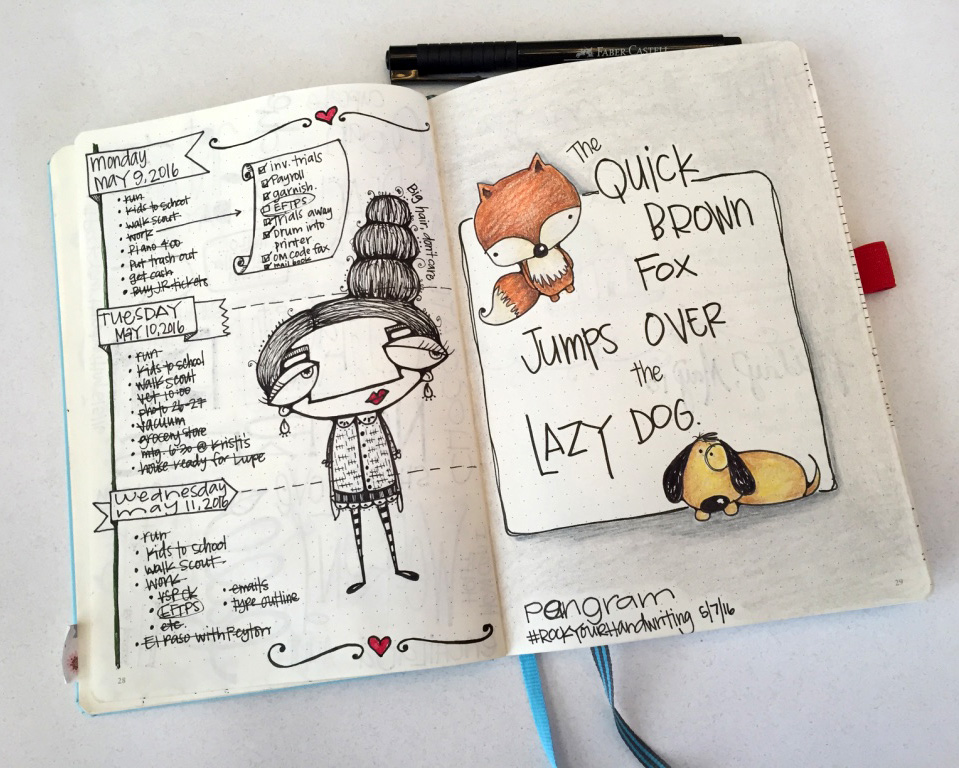 FABER CASTELL
monday
MAY 9, 2016
run
kids to school
walk scout
work
Piano 4:00
Put trash out
get cash
Buy JR. tickets
inv. trials
Payroll
garnish.
EFTPS
Trials away
Drum into
printer
OM code fax
mail books
Big hair, don't care
TUESDAY
MAY 10, 2016
run
kids to school
walk scout
vet 10:00
photo 26-27
vacuum
grocery store
mtg. 6:30 @ Kristi's
house ready for Lupe
wednesday
may 11, 2016
run
kids to school
walk Scout
work
EFTPS
etc.
emails
type outline
El Paso with Peyton
28
The
QUICK
BROWN
FOX
JUMPS OVER
the
LAZY DOG.
29
Pangram
#ROCKYOURHandwriting 5/7/16